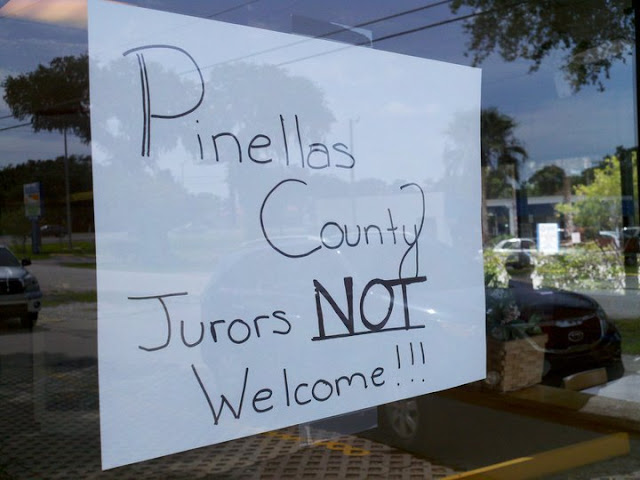 Pinellas
County
Jurors NOT
Welcome!!!